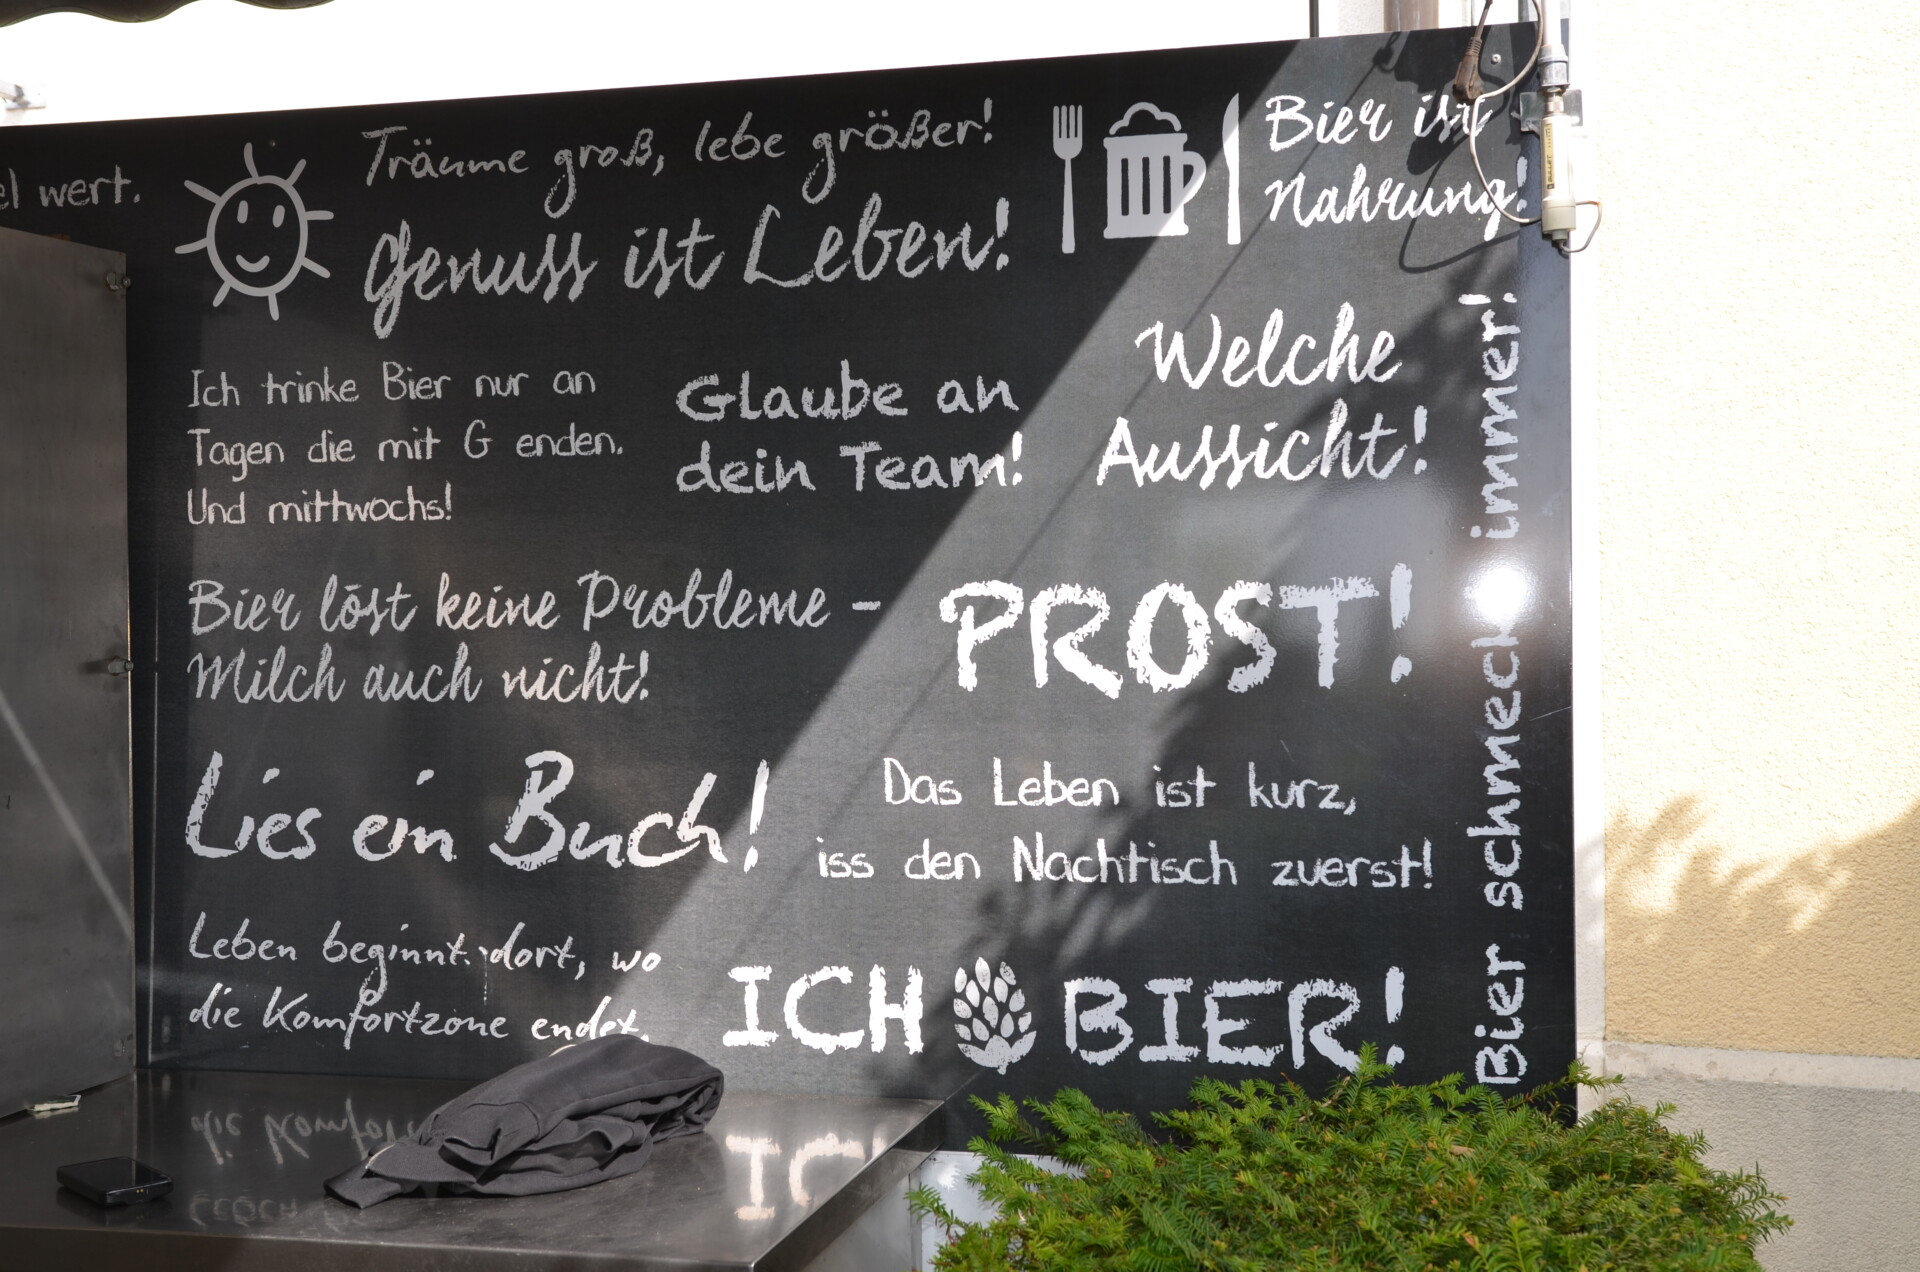 wert.
Träume groß, lebe größer!
Genuss ist Leben!
Bier ist
Nahrung!
Ich trinke Bier nur an
Tagen die mit G enden.
Und mittwochs!
Glaube an
dein Team!
Welche
Aussicht!
Bier löst keine Probleme –
Milch auch nicht!
PROST!
Lies ein Buch!
Das Leben ist kurz,
iss den Nachtisch zuerst!
Leben beginnt dort, wo
die Komfortzone endet.
ICH BIER!
Bier schmeckt immer!